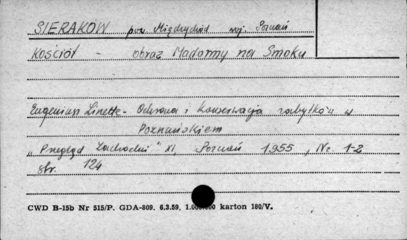 SIERAKÓW pow. Międzychód woj. Poznań
Kościół - obraz Madonny na Smoku
Eugeniusz Linette - Ochrona i konserwacja zabytków w
Poznańskiem
„Przegląd Zachodni" XI Poznań 1955, Nr. 1-2
str. 124
CWD B-15b Nr 515/P. GDA-809, 6.3.59, karton 180/V.